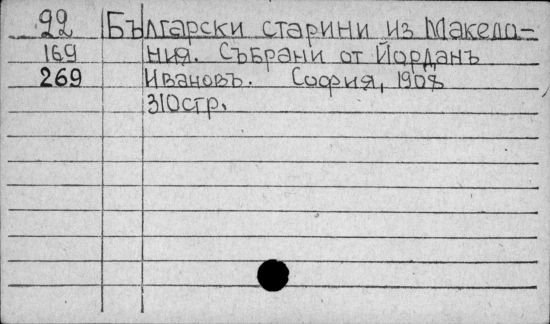 22 Български старини из Македо-
169 ния. Събрани от Йорданъ
269 Ивановъ. София, 1908
310стр.